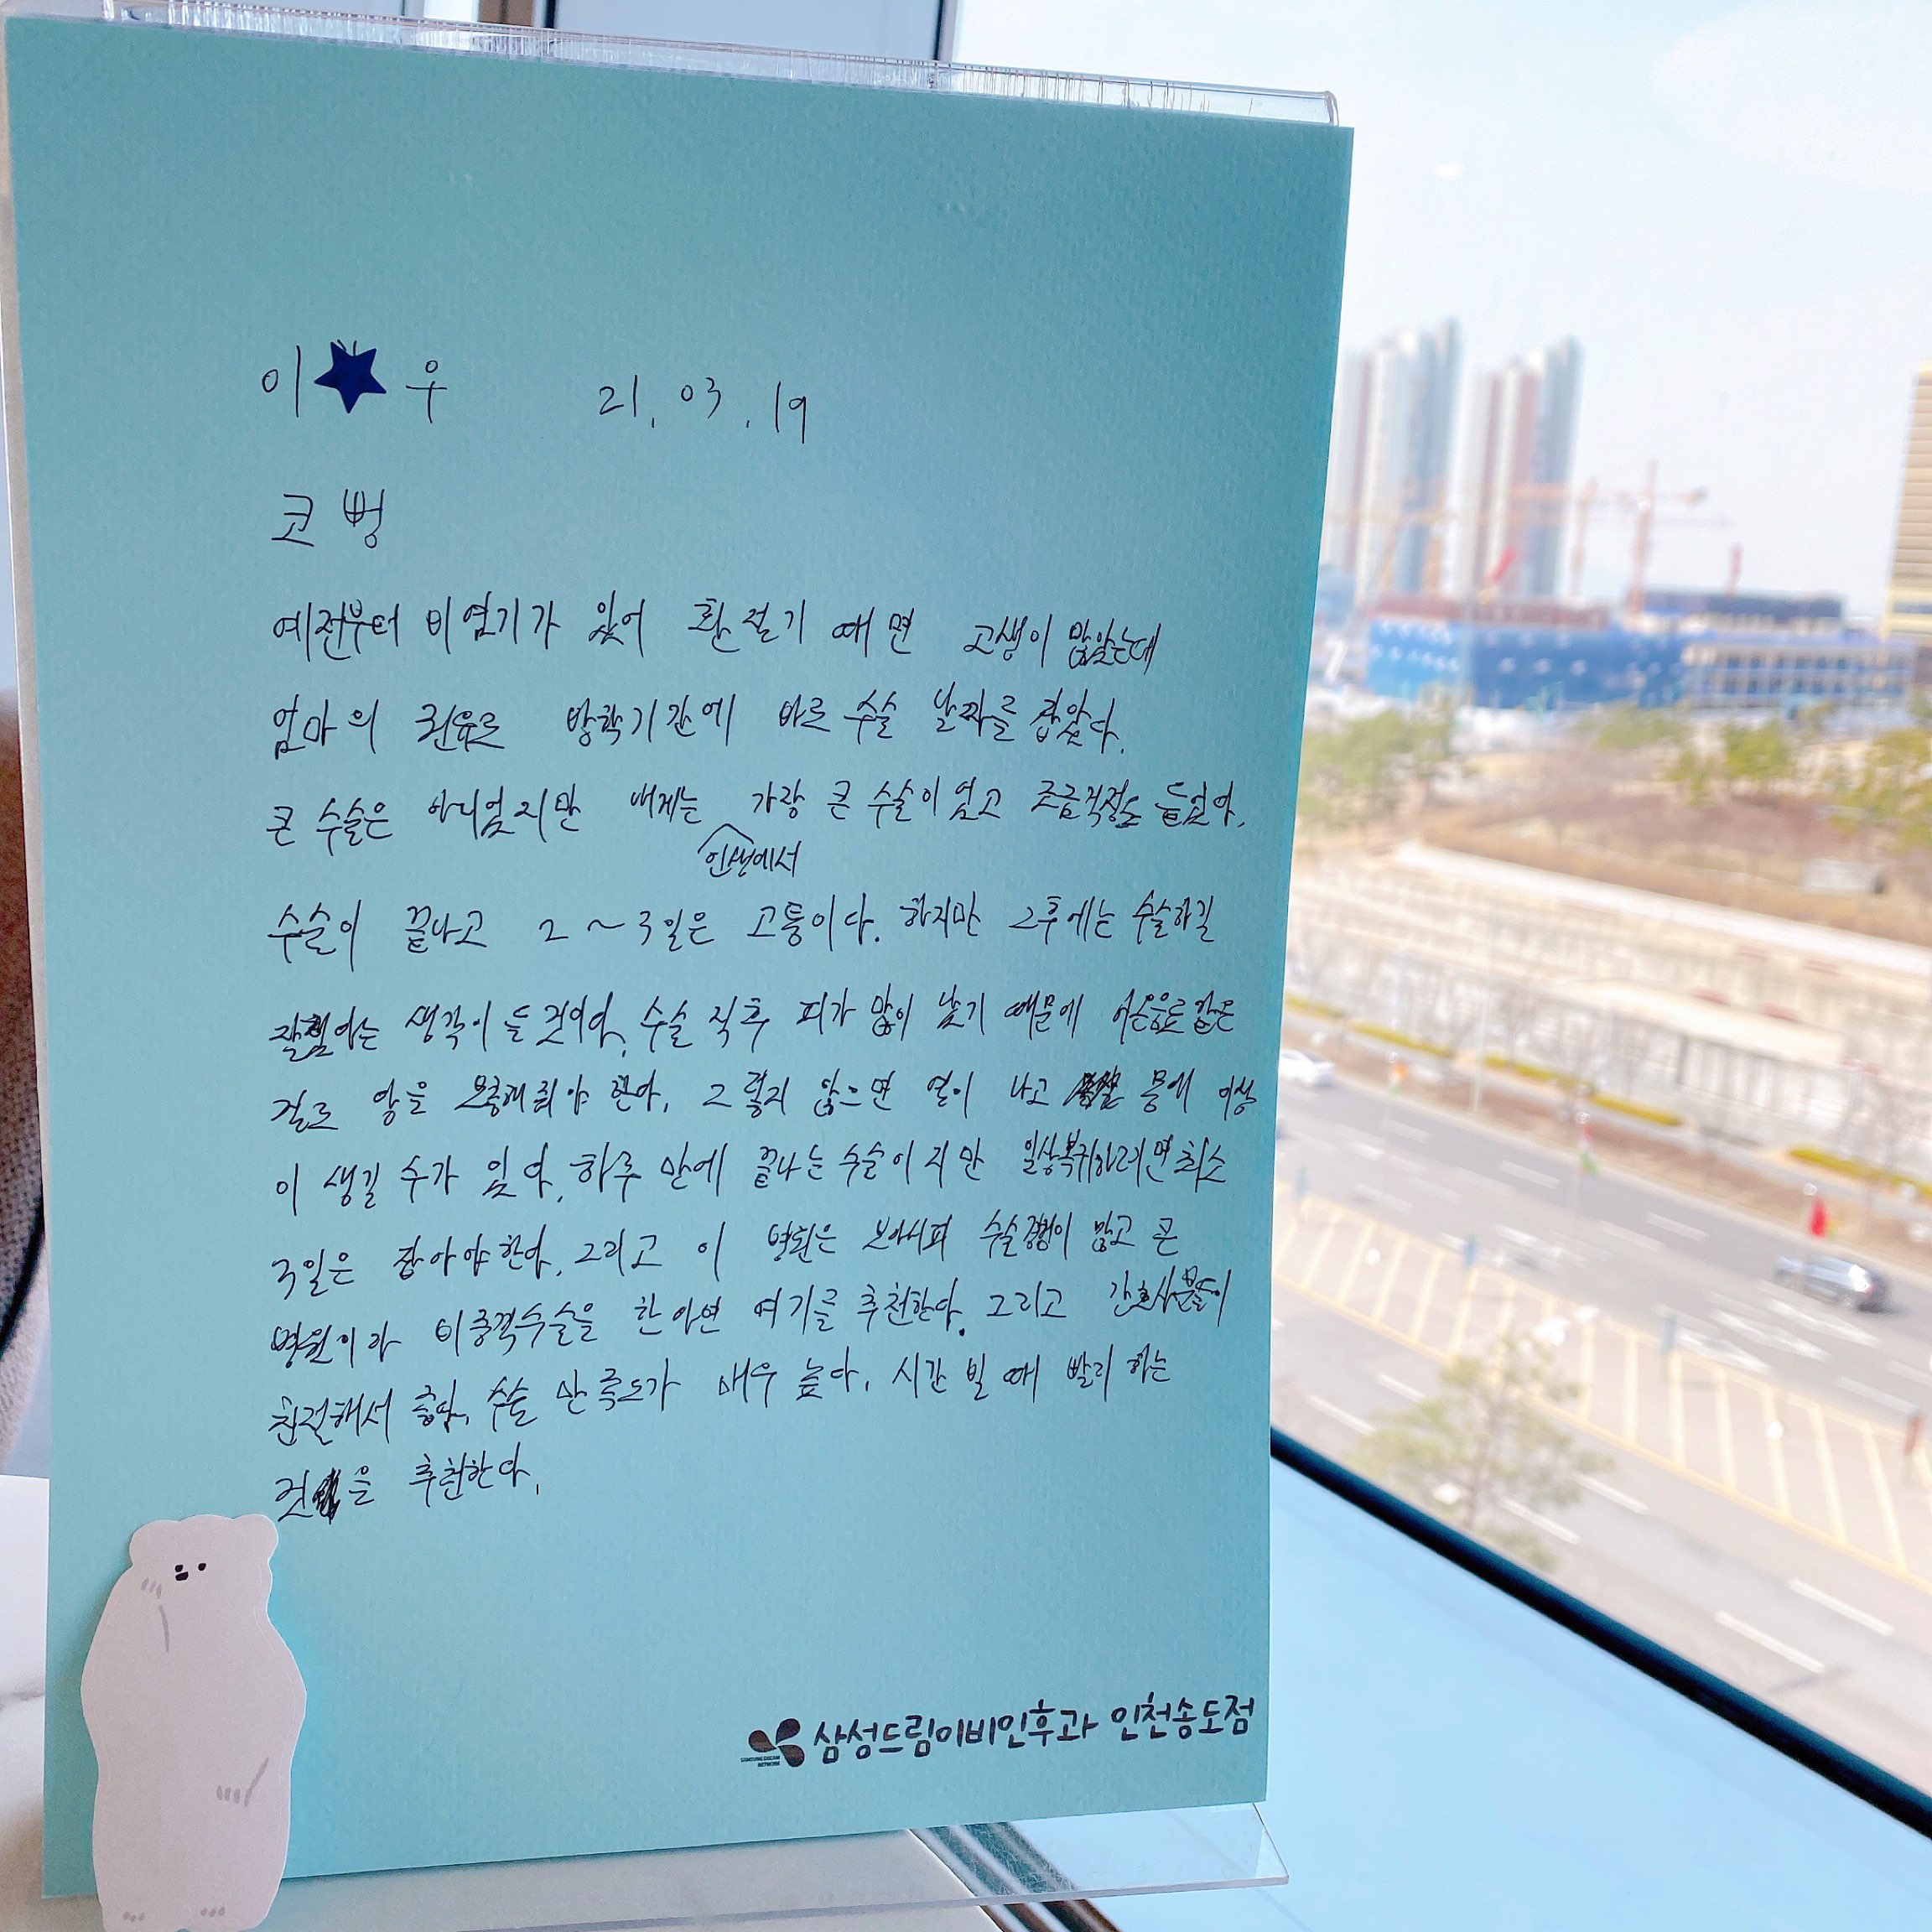 이 우 21. 03. 19
코 병
예전부터 비염기가 있어 환절기 때면 고생이 많았는데
엄마의 권유로 방학기간에 바로 수술 날짜를 잡았다.
큰 수술은 아니었지만 내게는 가장 큰 수술이었고 조금걱정도 들었다.
인생에서
수술이 끝나고 2~3일은 고통이다. 하지만 그후에는 수술하길
잘했다는 생각이 들것이다. 수술 직후 피가 많이 났기 때문에 이온음료같은
걸로 당을 보충해줘야 한다. 그렇지 않으면 열이 나고 몸에 이상
이 생길 수가 있다. 하루 만에 끝나는 수술이지만 일상복귀하려면 최소
3일은 잡아야한다. 그리고 이 병원은 보아시피 수술경험이 많고 큰
병원이라 비중격수술을 한다면 여기를 추천한다. 그리고 간호사분들이
친절해서 좋다. 수술 만족도가 매우 높다. 시간 빌 때 빨리 하는
것을 추천한다.
SAMSUNG DREAM NETWORK 삼성드림이비인후과 인천송도점